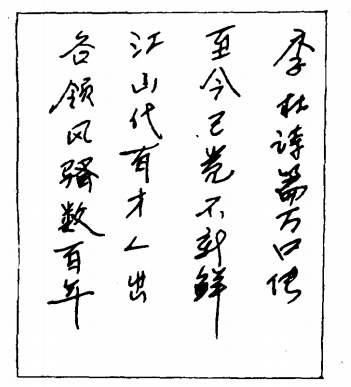 李杜诗篇万口传
至今已觉不新鲜
江山代有才人出
各领风骚数百年